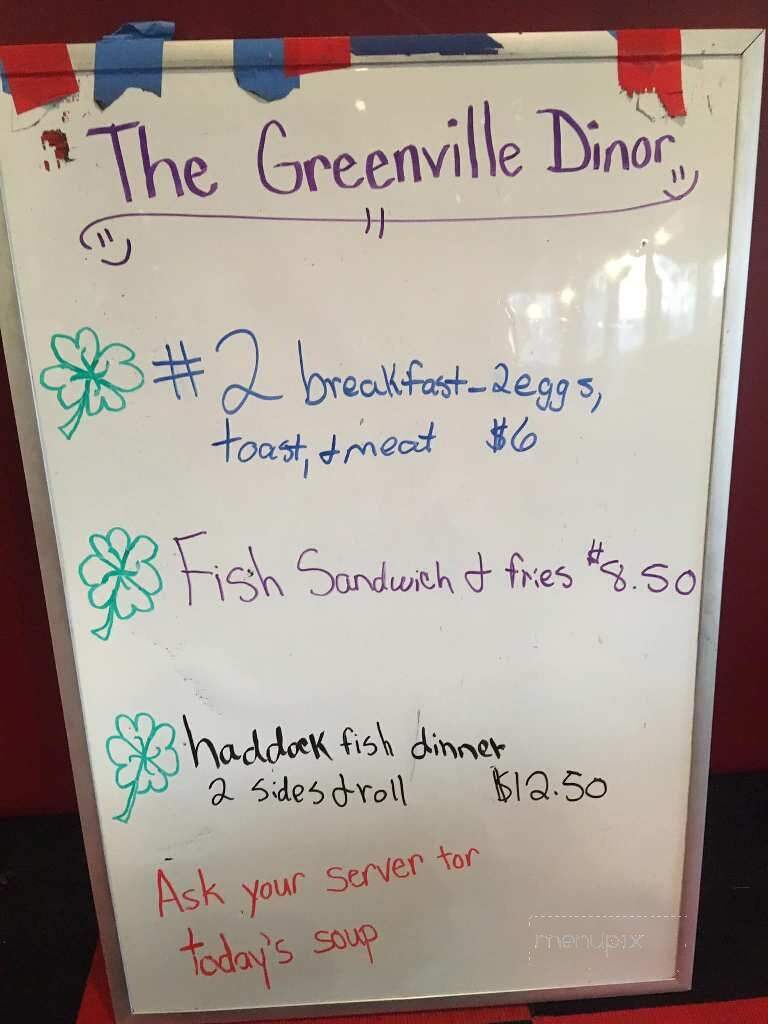 The Greenville Dinor
#2 breakfast - 2 eggs,
toast, & meat $6
Fish Sandwich & fries $8.50
haddock fish dinner
2 sides & roll $12.50
Ask your server for
today's soup
menupix